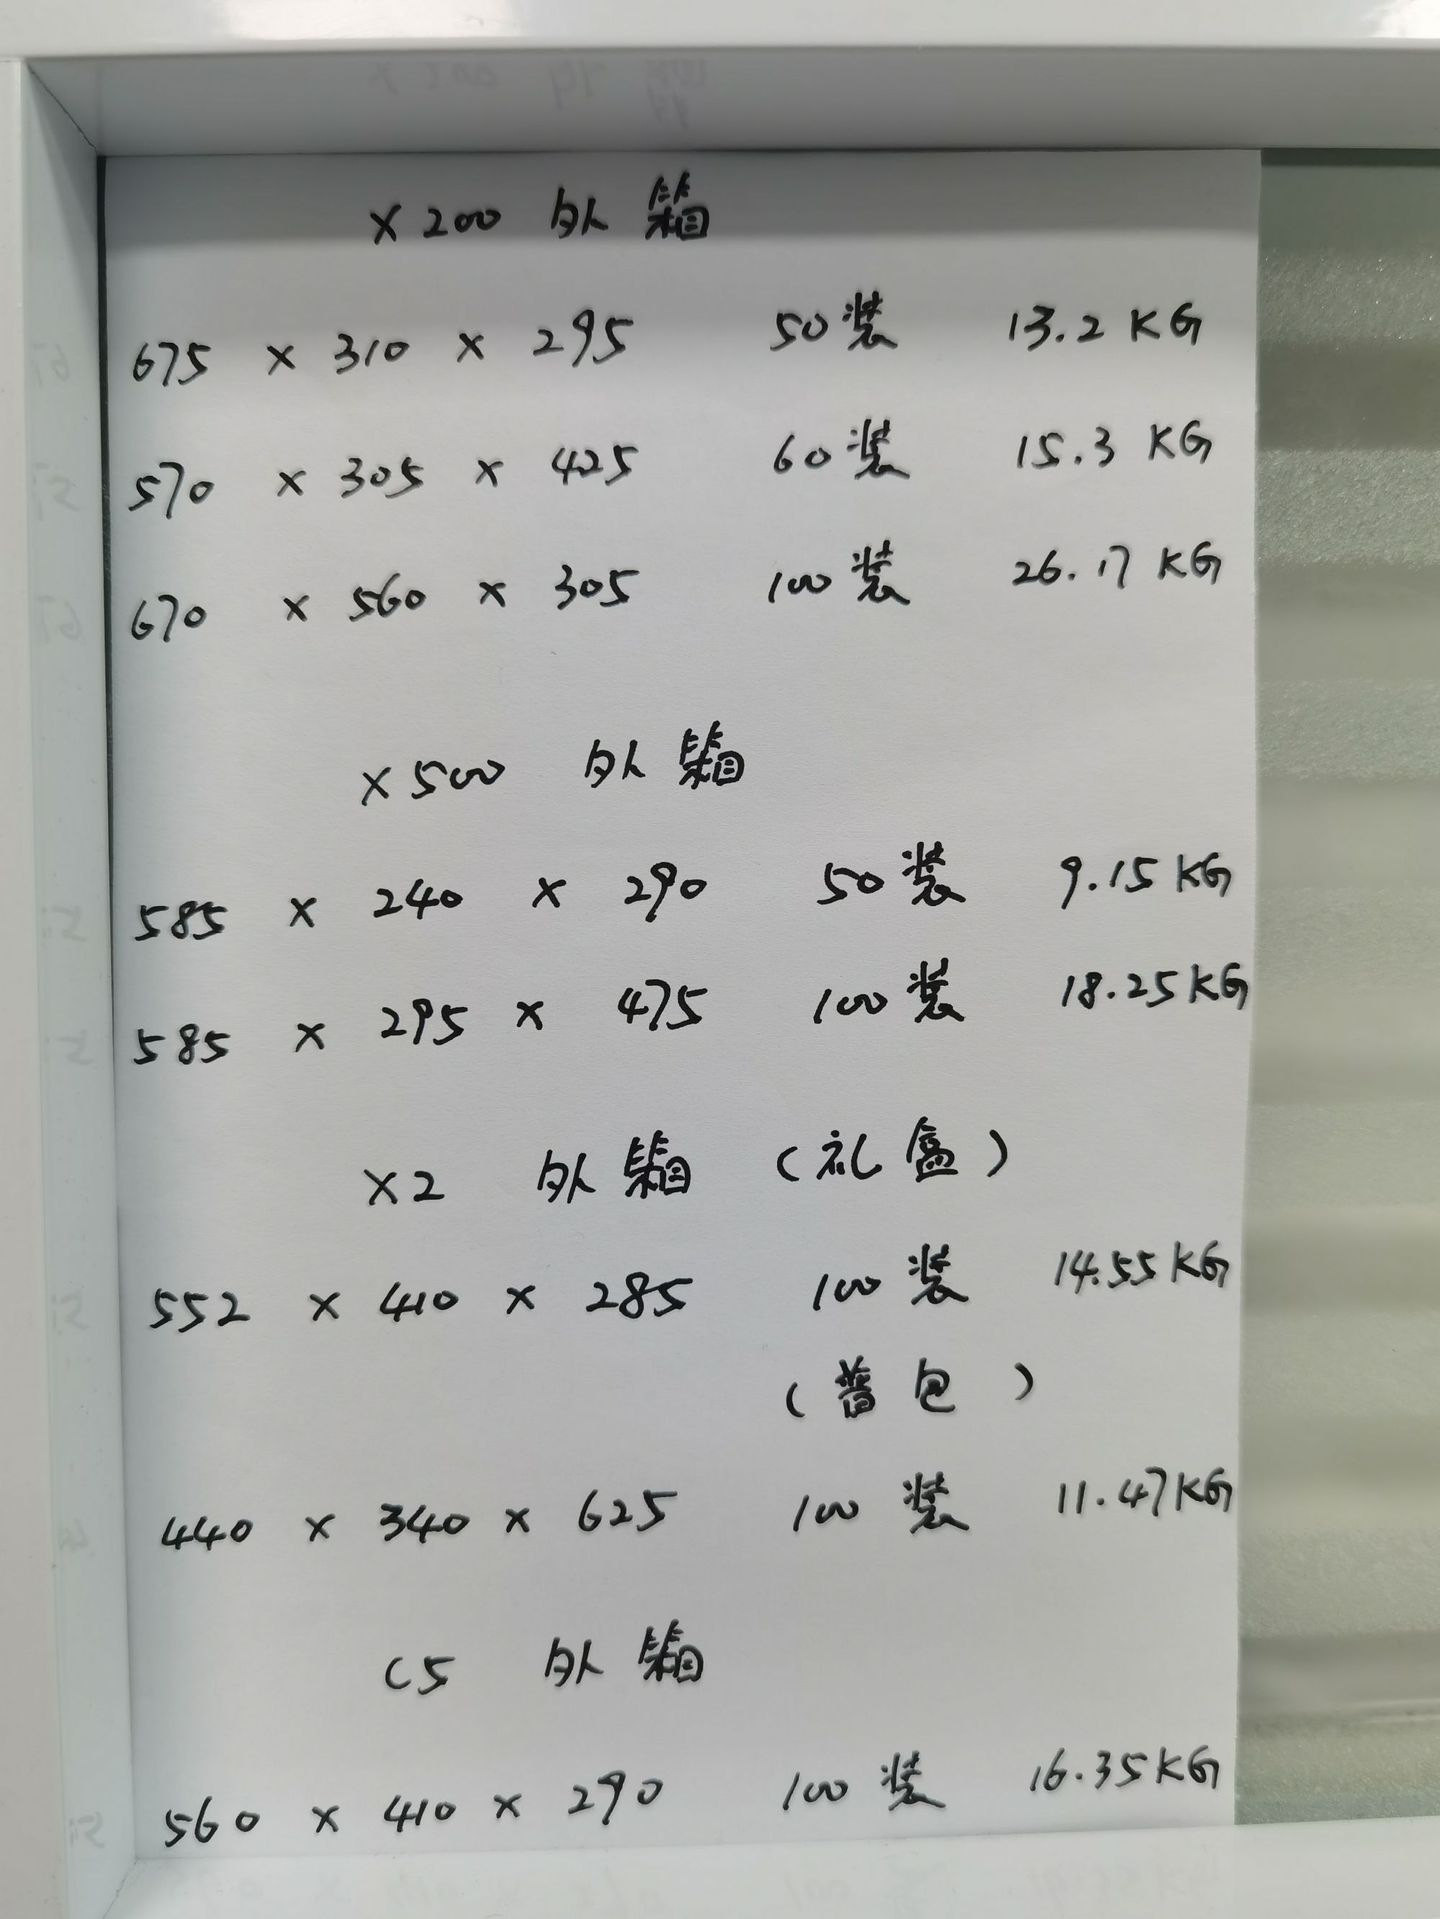 X200 外箱
675 × 310 × 295 50装 13.2KG
570 × 305 × 425 60装 15.3KG
670 × 560 × 305 100装 26.17KG
X500 外箱
585 × 240 × 290 50装 9.15KG
585 × 295 × 475 100装 18.25KG
X2 外箱 (礼盒)
552 × 410 × 285 100装 14.55KG
(普包)
440 × 340 × 625 100装 11.47KG
C5 外箱
560 × 410 × 290 100装 16.35KG